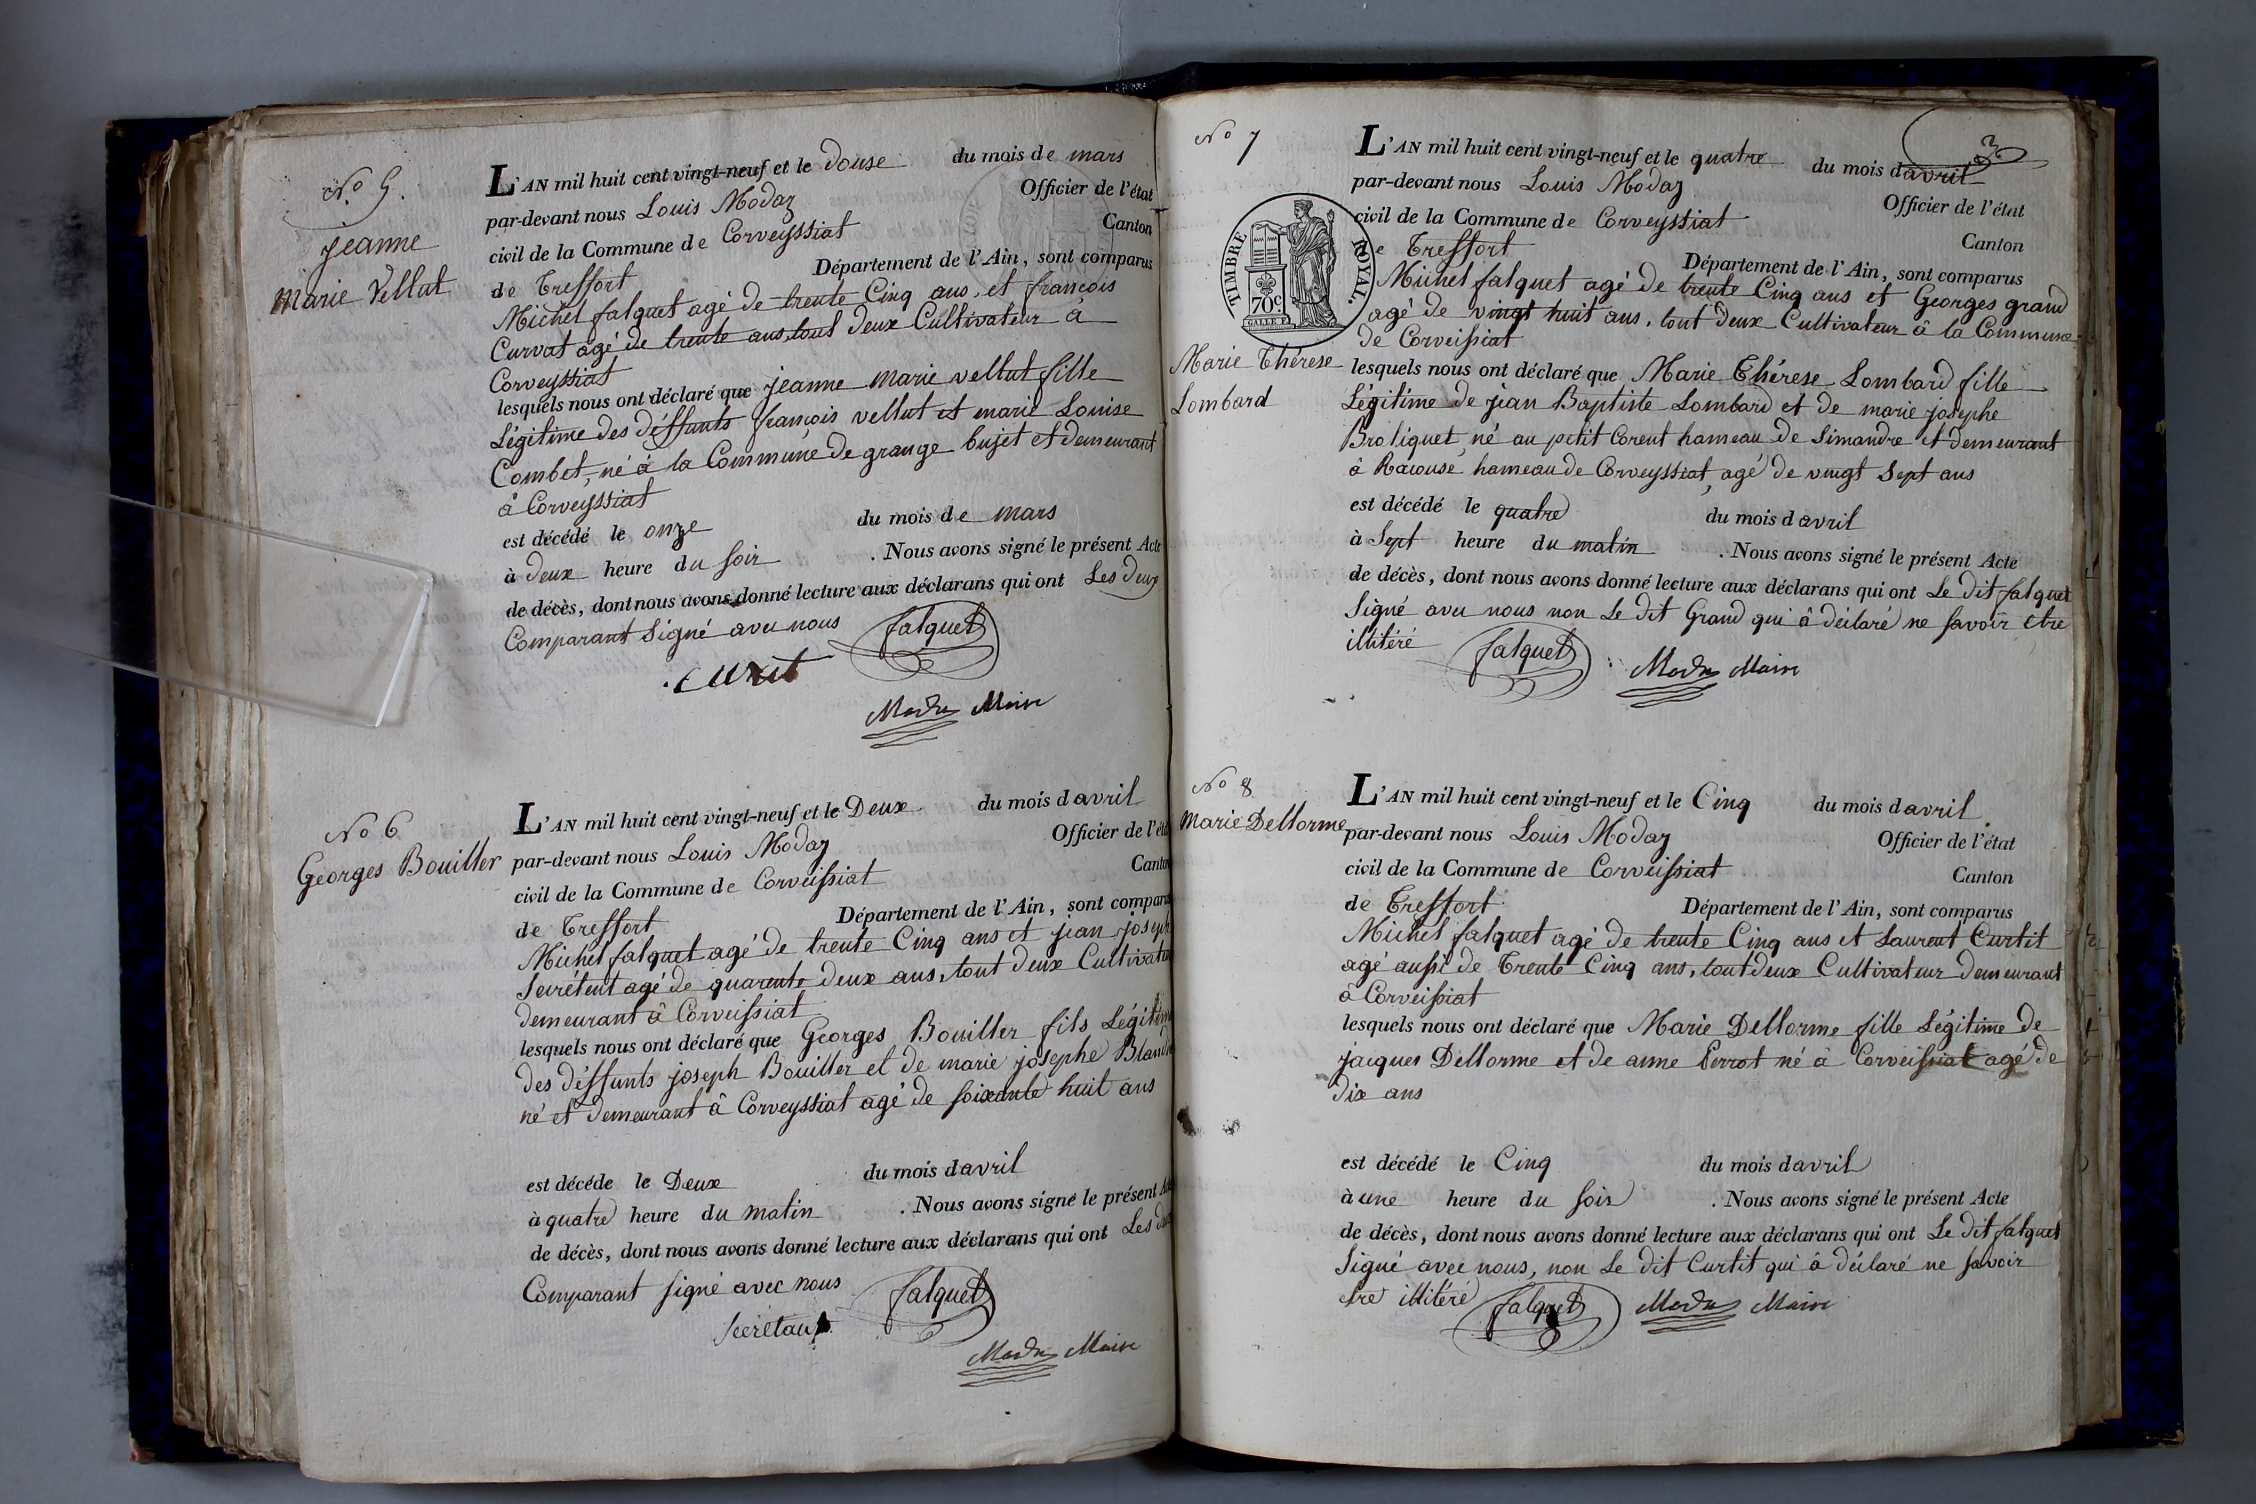 N.o 5.
Jeanne
Marie Vellut
L'AN mil huit cent vingt-neuf et le douse du mois de mars
par-devant nous Louis Modaz Officier de l'état
civil de la Commune de Corveyssiat Canton
de Treffort Département de l'Ain, sont comparus
Michel falquet agé de trente Cinq ans, et françois
Curvat agé de trente ans, tout deux Cultivateur à
Corveyssiat
lesquels nous ont déclaré que jeanne marie vellut fille
Légitime des déffunts françois vellut et marie Louise
Combet, né à la Commune de grange bujet et demeurant
à Corveyssiat
est décédé le onze du mois de mars
à deux heure du soir . Nous avons signé le présent Acte
de décès, dont nous avons donné lecture aux déclarans qui ont Les deux
Comparant signé avec nous falquet
Modaz Maire
No 6
Georges Bouiller
L'AN mil huit cent vingt-neuf et le Deux du mois d avril
par-devant nous Louis Modaz Officier de l'état
civil de la Commune de Corveissiat Canton
de Treffort Département de l'Ain, sont comparus
Michel falquet agé de trente Cinq ans et jean joseph
Secrétent agé de quarente deux ans, tout deux Cultivateur
demeurant à Corveissiat
lesquels nous ont déclaré que Georges Bouiller fils Légitime
des déffunts joseph Bouiller et de marie josephe
né et demeurant à Corveyssiat agé de soixante huit ans
est décéde le Deux du mois d avril
à quatre heure du matin . Nous avons signé le présent Acte
de décès, dont nous avons donné lecture aux déclarans qui ont Les deux
Comparant signé avec nous falquet
secretant
Modaz Maire
3
No 7
Marie Thérese
Lombard
TIMBRE ROYAL.
70c.
L'AN mil huit cent vingt-neuf et le quatre du mois d avril
par-devant nous Louis Modaz Officier de l'état
civil de la Commune de Corveyssiat Canton
e Treffort Département de l'Ain, sont comparus
Michel falquet agé de trente Cinq ans et Georges grand
agé de vingt huit ans, tout deux Cultivateur à la Commune
de Corveissiat
lesquels nous ont déclaré que Marie Thérese Lombard fille
Légitime de jean Baptiste Lombard et de marie josephe
Broliquet, né au petit Corent hameau de Simandre et demeurant
à Racouse, hameau de Corveyssiat, agé de vingt sept ans
est décédé le quatre du mois d avril
à sept heure du matin . Nous avons signé le présent Acte
de décès, dont nous avons donné lecture aux déclarans qui ont Le dit falquet
signé avec nous non Le dit Grand qui à déclaré ne savoir être
illitéré falquet Modaz Maire
No 8
Marie Dellorme
L'AN mil huit cent vingt-neuf et le Cinq du mois d avril
par-devant nous Louis Modaz Officier de l'état
civil de la Commune de Corveissiat Canton
de Treffort Département de l'Ain, sont comparus
Michel falquet agé de trente Cinq ans et Laurent Curtit
agé aussi de Trente Cinq ans, tout deux Cultivateur demeurant
à Corveissiat
lesquels nous ont déclaré que Marie Dellorme fille Légitime de
jacques Dellorme et de anne Perrot né à Corveissiat agé de
dix ans
est décédé le Cinq du mois d avril
à une heure du soir . Nous avons signé le présent Acte
de décès, dont nous avons donné lecture aux déclarans qui ont Le dit falquet
signé avec nous, non Le dit Curtit qui à déclaré ne savoir
etre illitéré falquet Modaz Maire